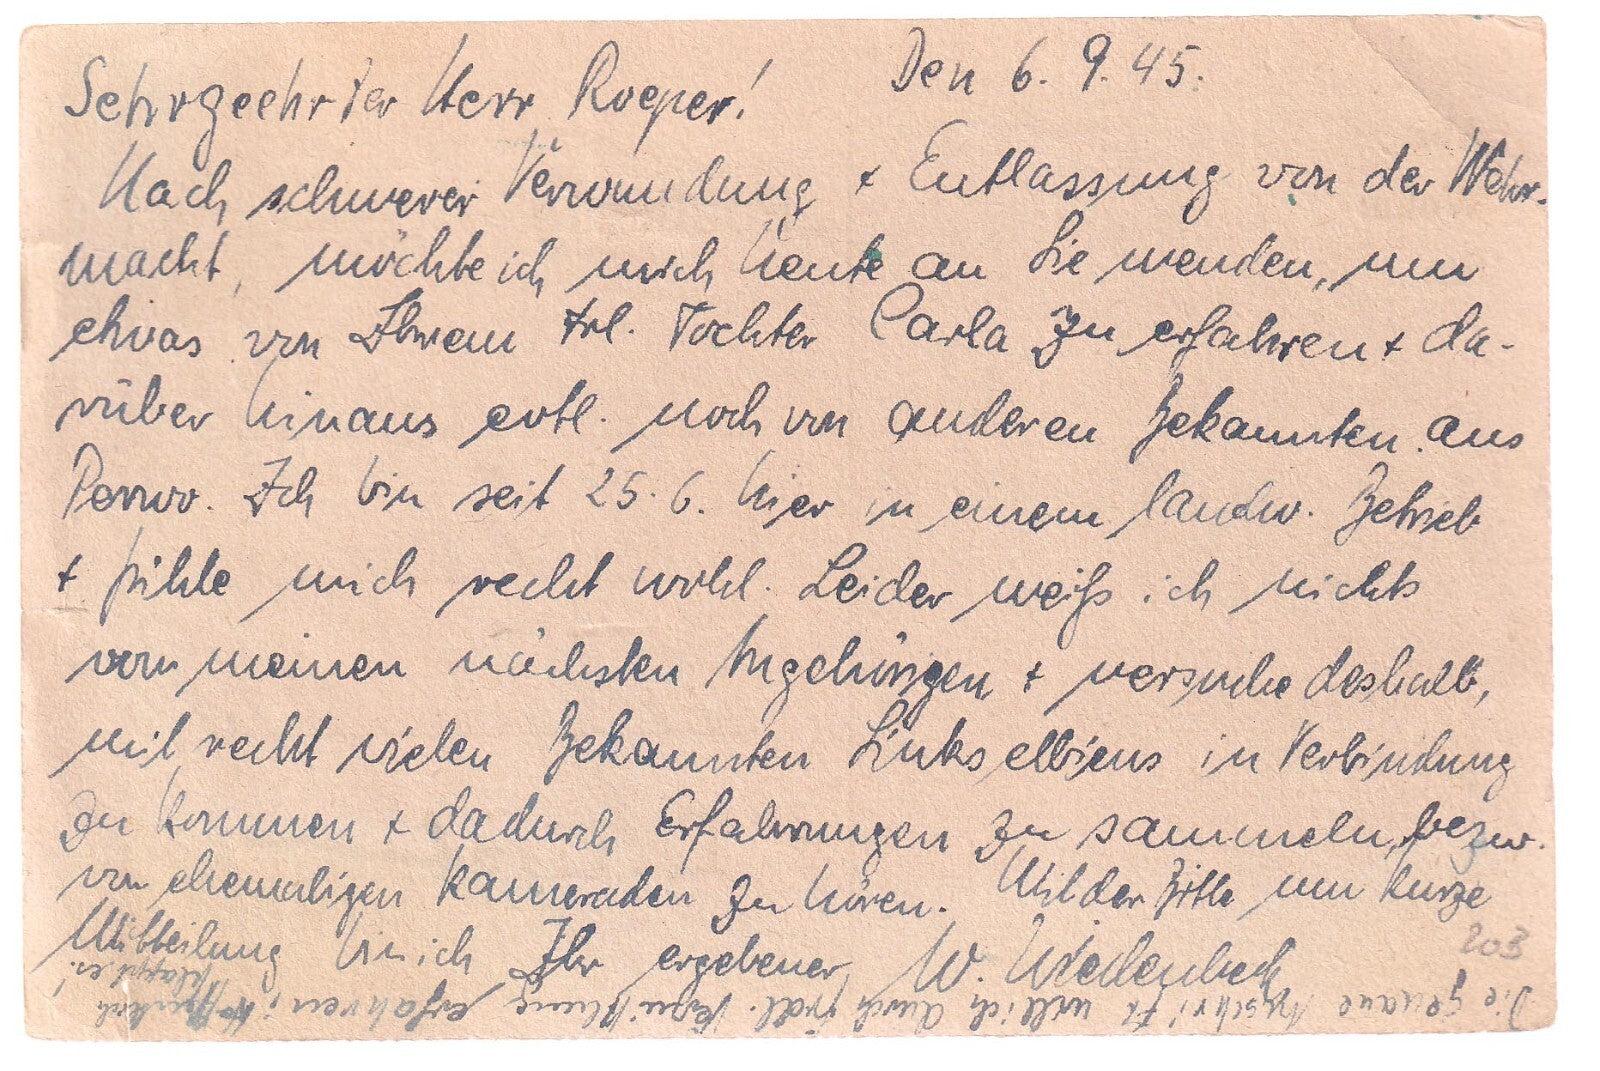 Den 6. 9. 45.
Sehrgeehrter Herr Roeper!
Nach schwerer Verwundung + Entlassung von der Wehr-
macht, möchte ich mich heute an Sie wenden, um
etwas von Ihrem Frl. Tochter Carla zu erfahren + da-
rüber hinaus evtl. noch von anderen Bekannten aus
Ich bin seit 25. 6. hier in einem landw. Betrieb
+ fühle mich recht wohl. Leider weiß ich nichts
von meinen nächsten Angehörigen + versuche deshalb,
mit recht vielen Bekannten Linkselbiens in Verbindung
zu kommen + dadurch Erfahrungen zu sammeln, bezw.
von ehemaligen Kameraden zu hören. Mit der Bitte um kurze
Mitteilung bin ich Ihr ergebener W. Wiedenbeck
203
Die genaue Anschrift will ich durch Vermittlung erfahren; hoffentlich
klappt es!